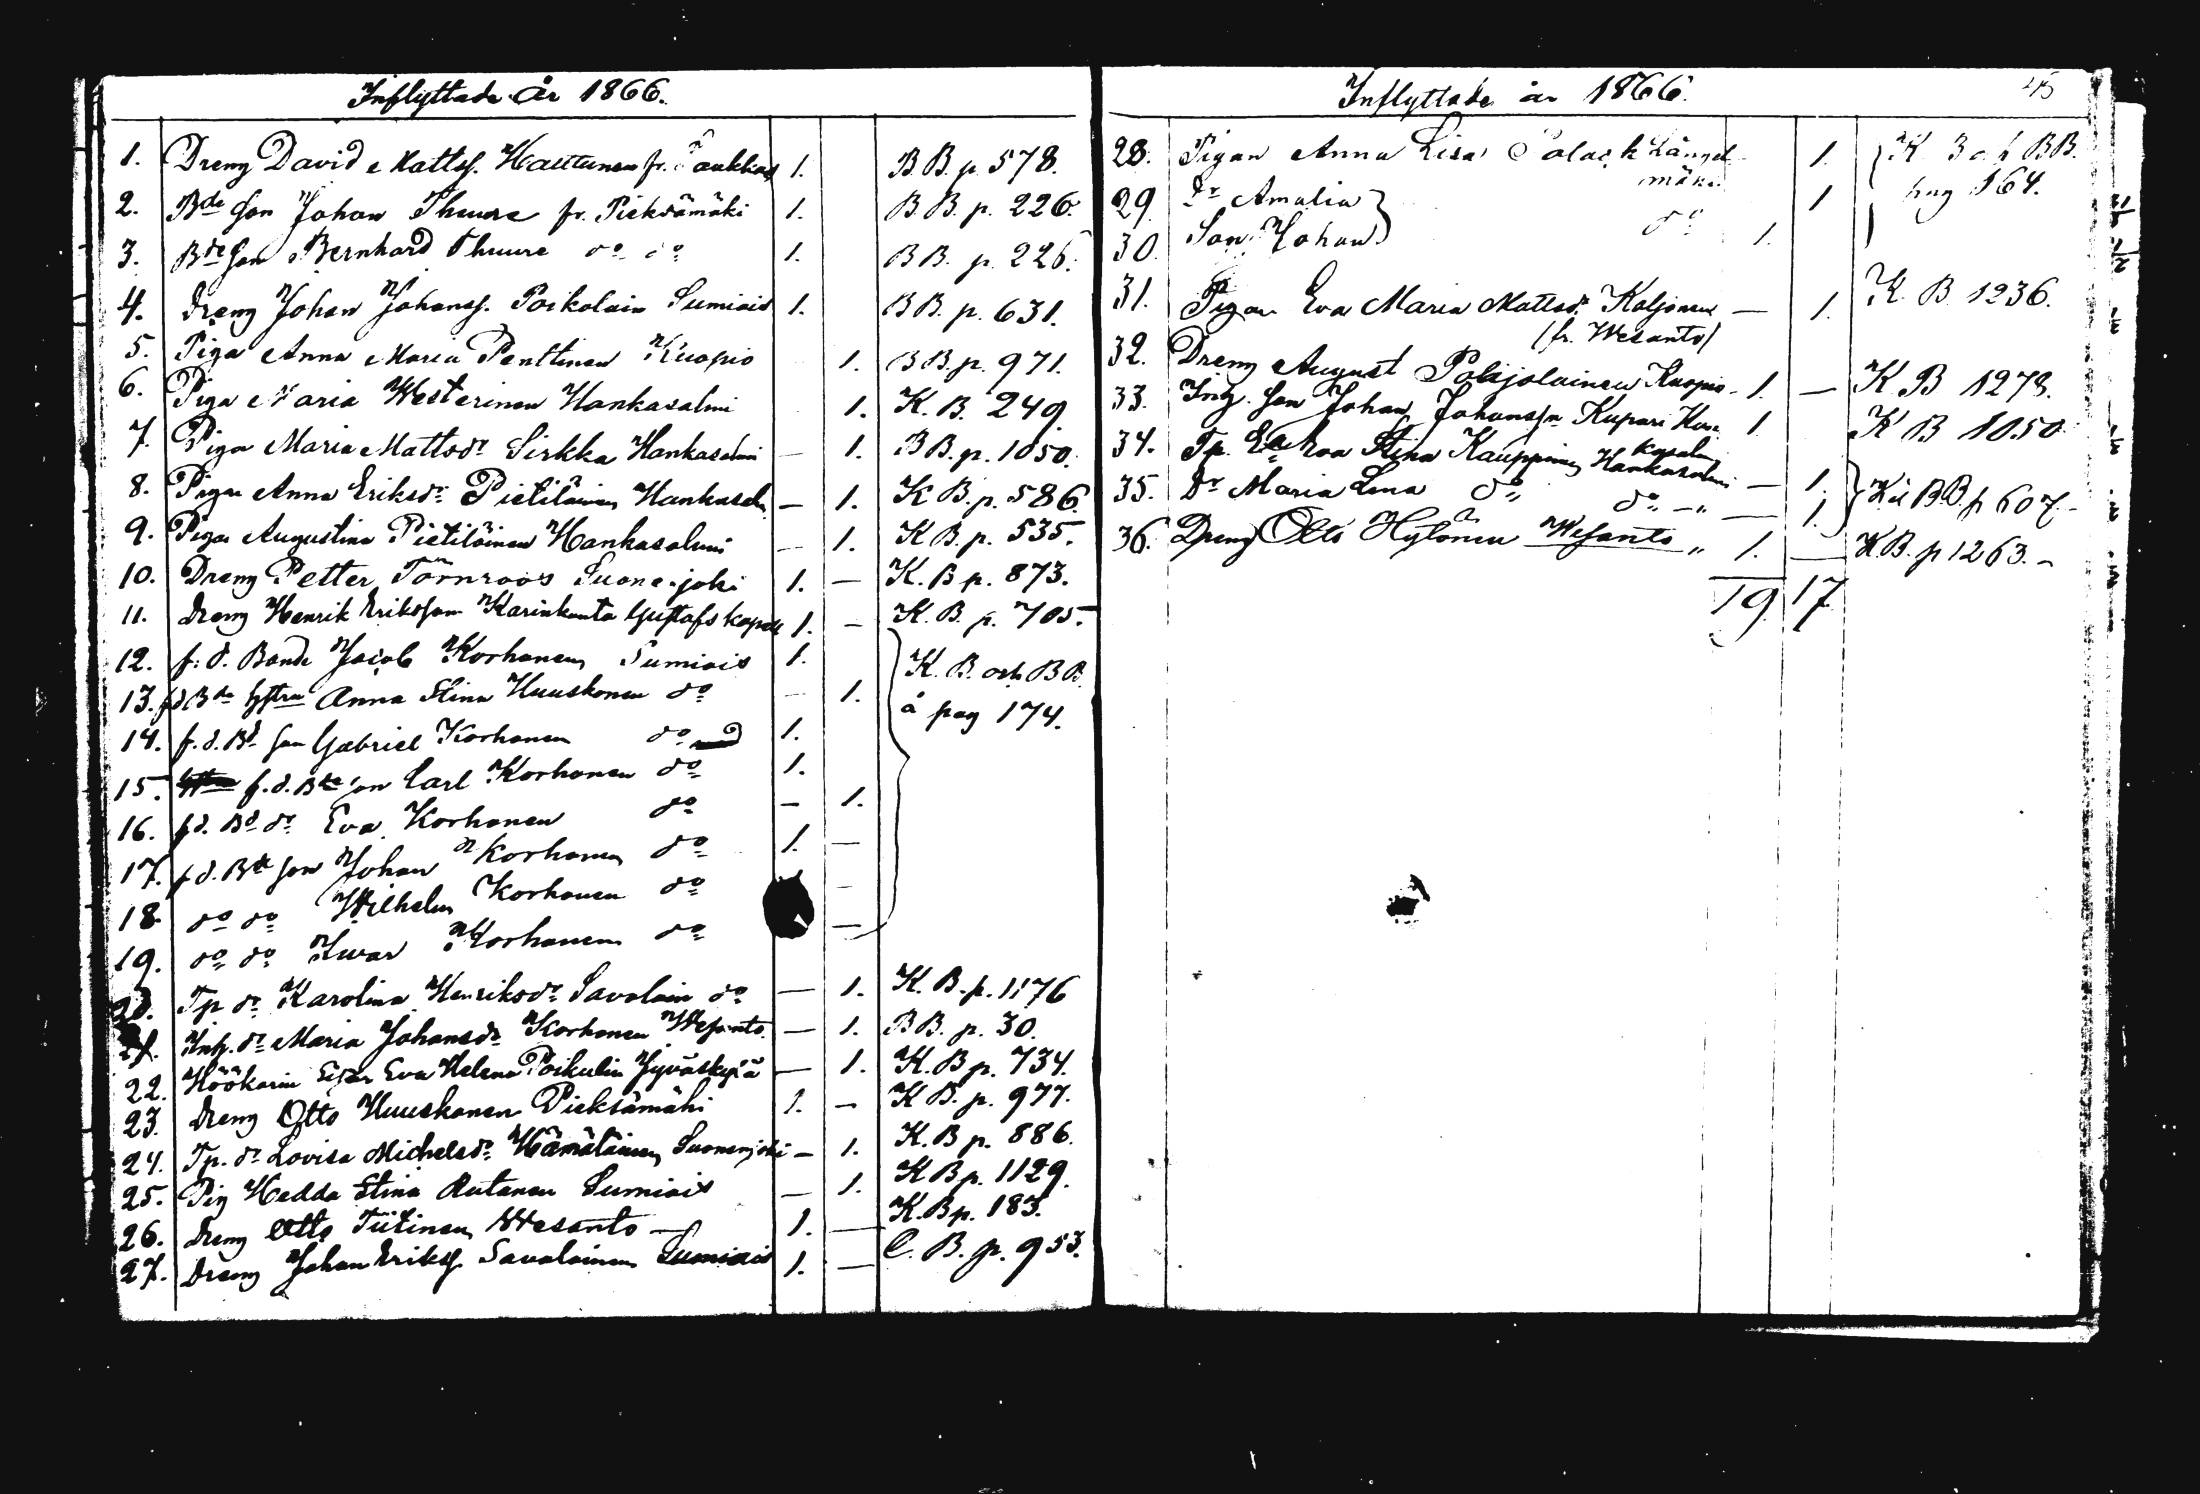 Inflyttade År 1866.
1. Dreng David Mattss. Hautainen fr. 1. B B. p. 578.
2. Bde Son Johan Thuure fr. Pieksämäki 1. B B. p. 226.
3. Bde Son Bernhard Thuure do do 1. B B. p. 226.
4. Dreng Johan Johanss. Poikolain Sumiais 1. B B. p. 631.
5. Piga Anna Maria Penttinen Kuopio 1. B B. p. 971.
6. Piga Maria Westerinen Hankasalmi 1. K. B. 249
7. Piga Maria Mattsdr Sirkka Hankasalmi — 1. B B. p. 1050.
8. Piga Anna Eriksdr Pietiläinen Hankasalm — 1. K B. p. 586.
9. Piga Augustina Pietiläinen Hankasalmi — 1. K B. p. 535.
10. Dreng Petter Törnroos Suonejoki 1. — K. B p. 873.
11. Dreng Henrik Eriksson Karinkanta Gustafs kapell 1. — K. B. p. 705.
12. f. d. Bonde Jacob Korhonen Sumiais 1. K. B. och B B.
13. fd Bde hstru Anna Stina Huuskonen do — 1. å pag 174.
14. f. d. Bd Son Gabriel Korhonen do 1.
15. f. d. Bde Son Carl Korhonen do 1.
16. fd. Bd dr Eva Korhonen do — 1.
17. f d. Bde Son Johan Korhonen do 1. —
18. do do Wilhelm Korhonen do —
19. do do Iwar Korhonen do —
20. Tp dr Karolina Henriksdr Savolain do — 1. K. B. p. 1176
21. Inh. dr Maria Johansdr Korhonen Wesanto — 1. B B. p. 30.
22. Eva Helena Poikulin Jyväskylä — 1. K. B p. 734.
23. Dreng Otto Huuskonen Pieksämäki 1. — K B. p. 977.
24. Tp. dr Lovisa Michelsdr Hämäläinen Suonenjoki — 1. K. B p. 886.
25. Pig Hedda Stina Rutanen Sumiais — 1. K B p. 1129.
26. Dreng Otto Tiitinen Wesanto — 1. — K. B p. 183.
27. Dreng Johan Erikss. Savolainen Sumiais 1. — C. B. p. 953.
Inflyttade år 1866. 45
28. Pigan Anna Lisa Längel- 1. K. B och BB.
mäki
29. Dr Amalia 1 pag 164.
30. Son Johan do 1.
31. Pigan Eva Maria Mattsdr Koljonen — 1. K. B 1236.
(fr. Wesanto)
32. Dreng August Pohjolainen Kuopio 1. — K B 1278.
33. Inh. Son Johan Johansson Kupari Han- 1 K B 1050
kasalmi
34. Tp. Eva Stina Kauppinen Hankasalmi — 1.
35. Dr Maria Lena do do — 1. K å B.B. p 607.
36. Dreng Otto Hytönen Wesanto 1. — K.B. p 1263.
19 17